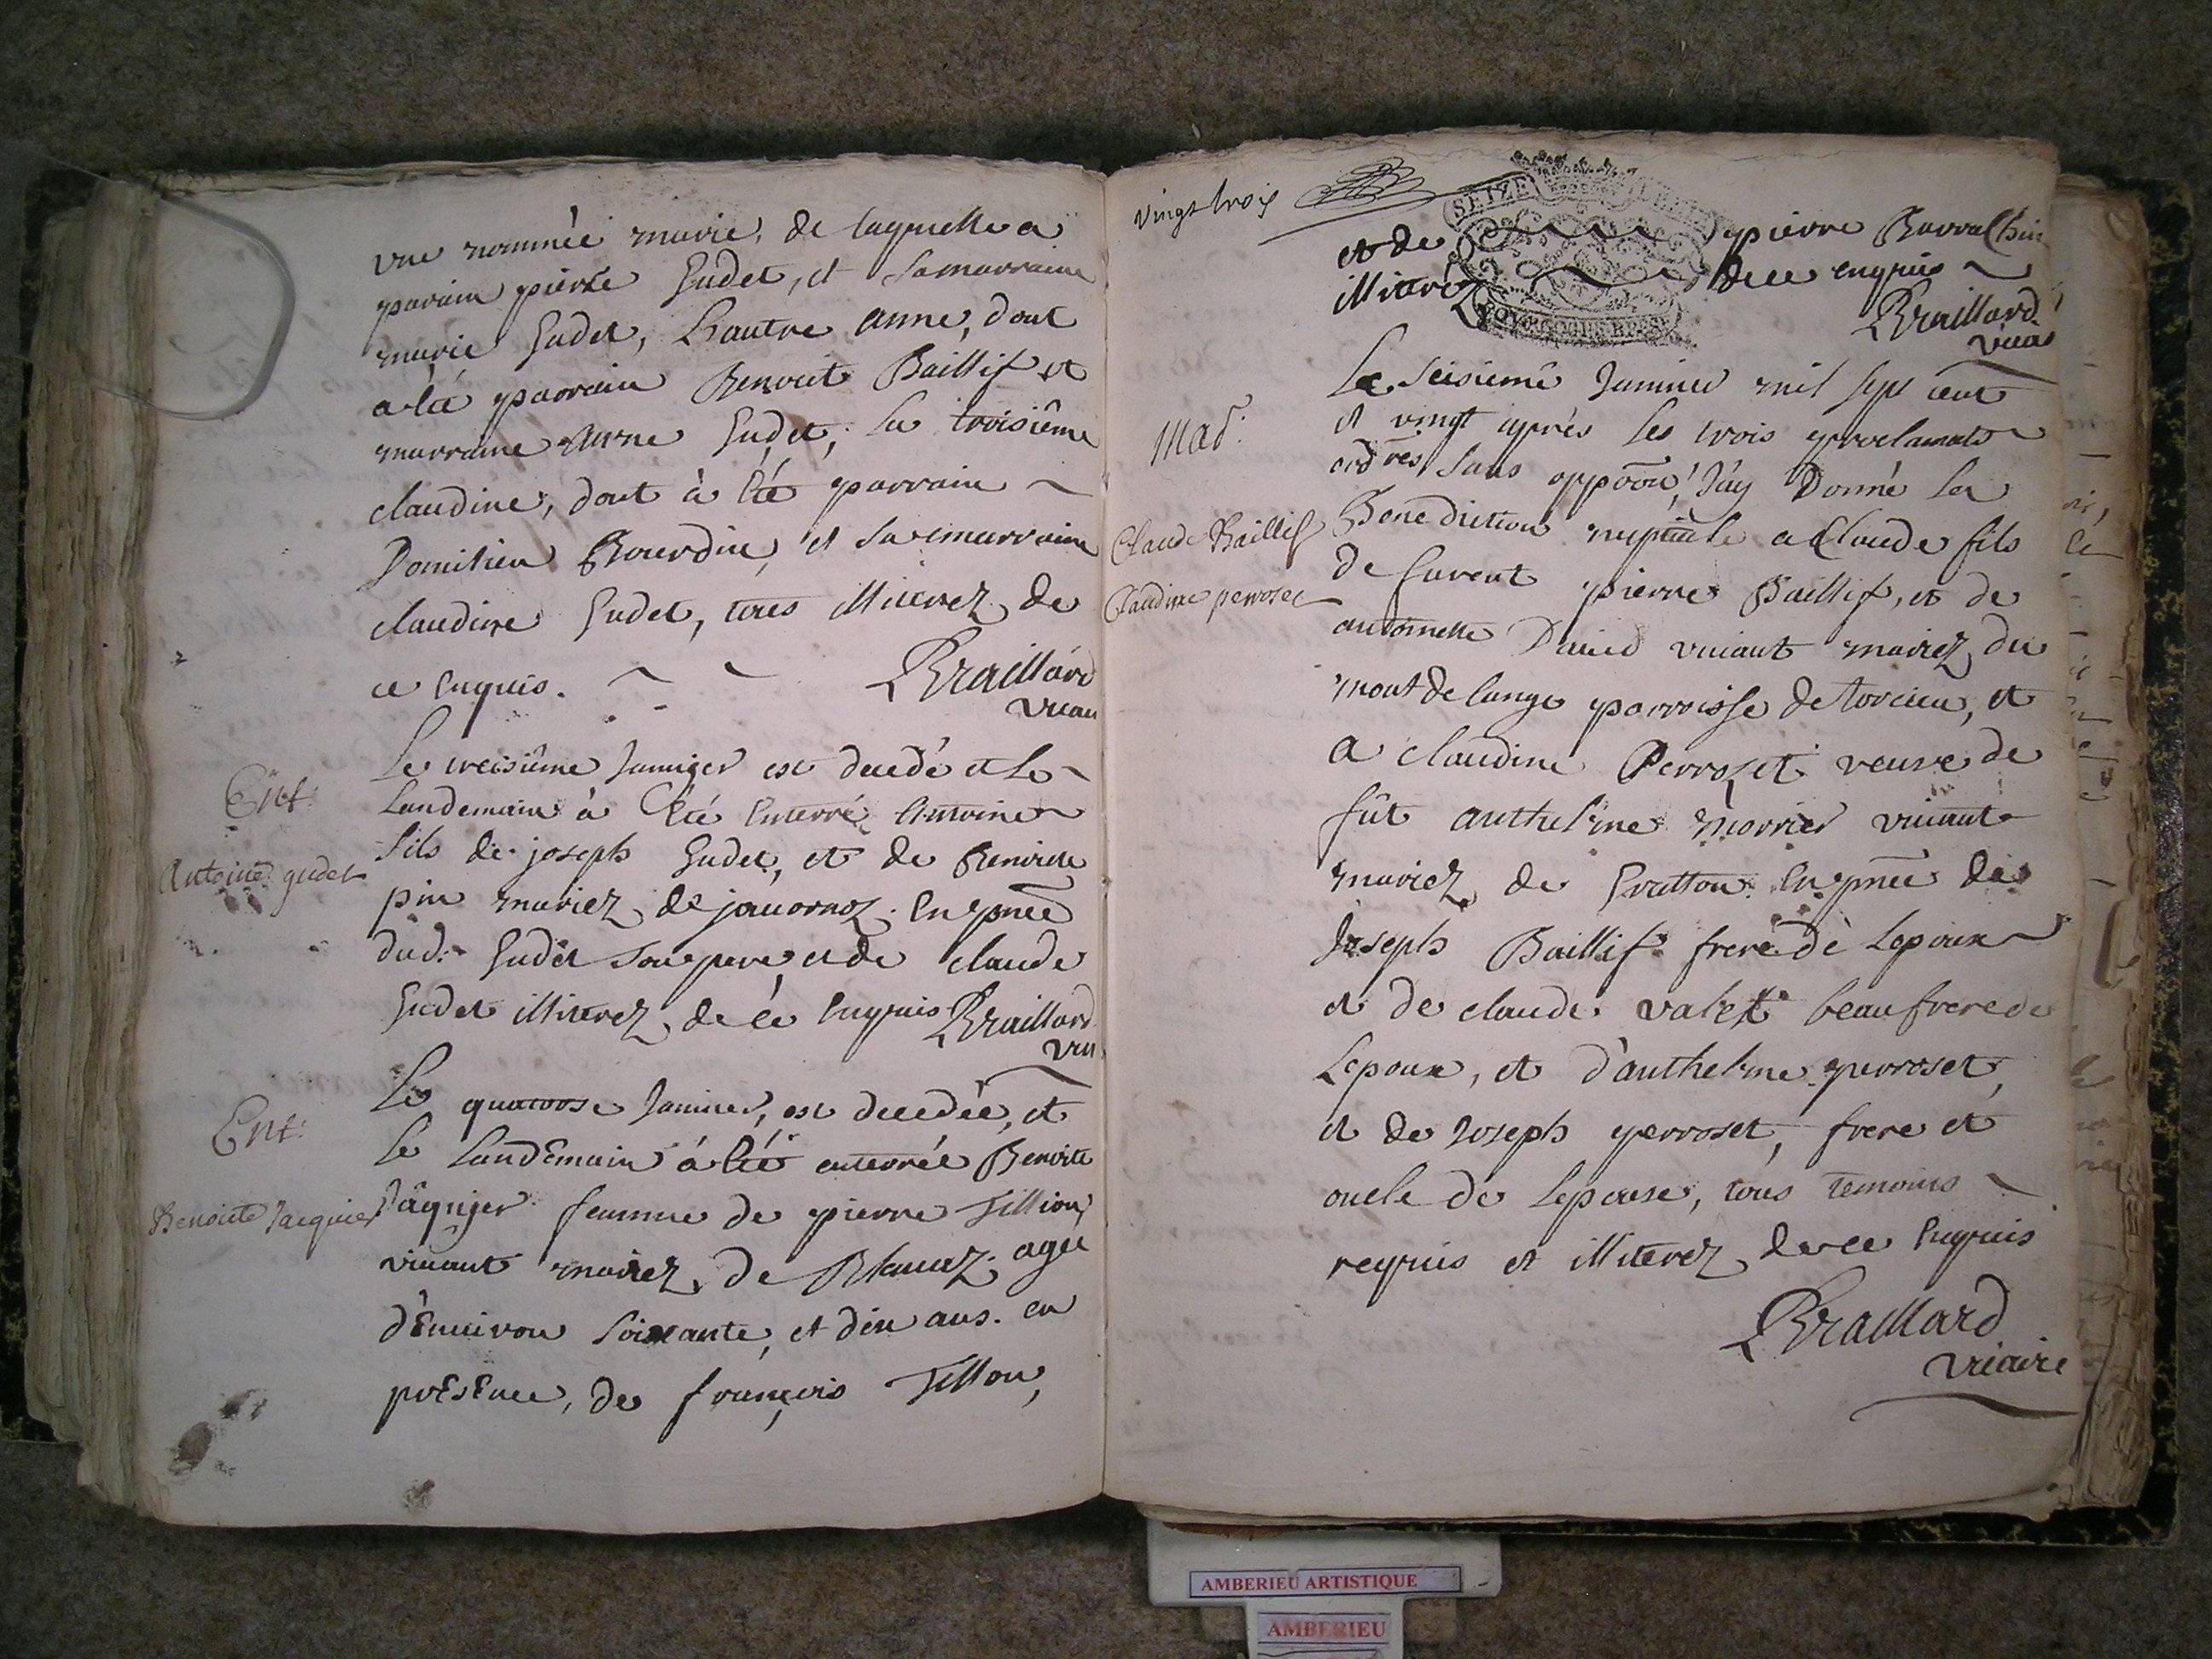 une nommée marie, de laquelle a
parain pierre Gudet, et sa marraine
marie Gudet, L'autre anne, dont
a été parrain Benoit Baillif et
marraine anne Gudet, La troisiême
claudine, dont à été parrain
Domitien Bourdin, et sa marraine
claudine Gudet, tous illiterez de
ce enquis. Braillard
vicai
Ent:
Antoine gudet
Le treisiême Janvier est decedé et le
Landemain à été enterré Antoine
fils de joseph Gudet, et de Benoite
pin mariez de jauornoz. en pnce
dud: Gudet son pere et de claude
Gudet illiterez de ce enquis Braillard
vic
Ent:
Benoite Jacquier
Le quatorse Janvier, est decedée, et
le Landemain à été enterrée Benoite
Jâquier femme de pierre Tillion
vivant mariez de Blanaz, agée
d'environ soixante, et dix ans. en
présence, de françois Tillon,
vingt trois
SEIZE
et de pierre Barralhin
illiteré de ce enquis
Braillard
vicai
Mad:
Claude Baillif
Claudine perroset
Le seisieme Janvier mil sept cent
et vingt après les trois proclamats
ordres sans oppoōn, J'ay Donné la
Benediction nuptiale a Claude fils
de furent pierre Baillif, et de
antoinette David vivant mariez du
mont de lange parroisse de torcieu, et
a claudine Perrozet veuve de
fût anthelme morrier vivant
mariez de Gratton en pnce de
Joseph Baillif frere de Lepoux
et de claude valet beaufrere de
Lepoux, et d'anthelme perroset,
et de Joseph perroset, frere et
oncle de Lepouse, tous temoins
requis et illiterez de ce enquis
Braillard
vicaire
AMBERIEU ARTISTIQUE
AMBERIEU